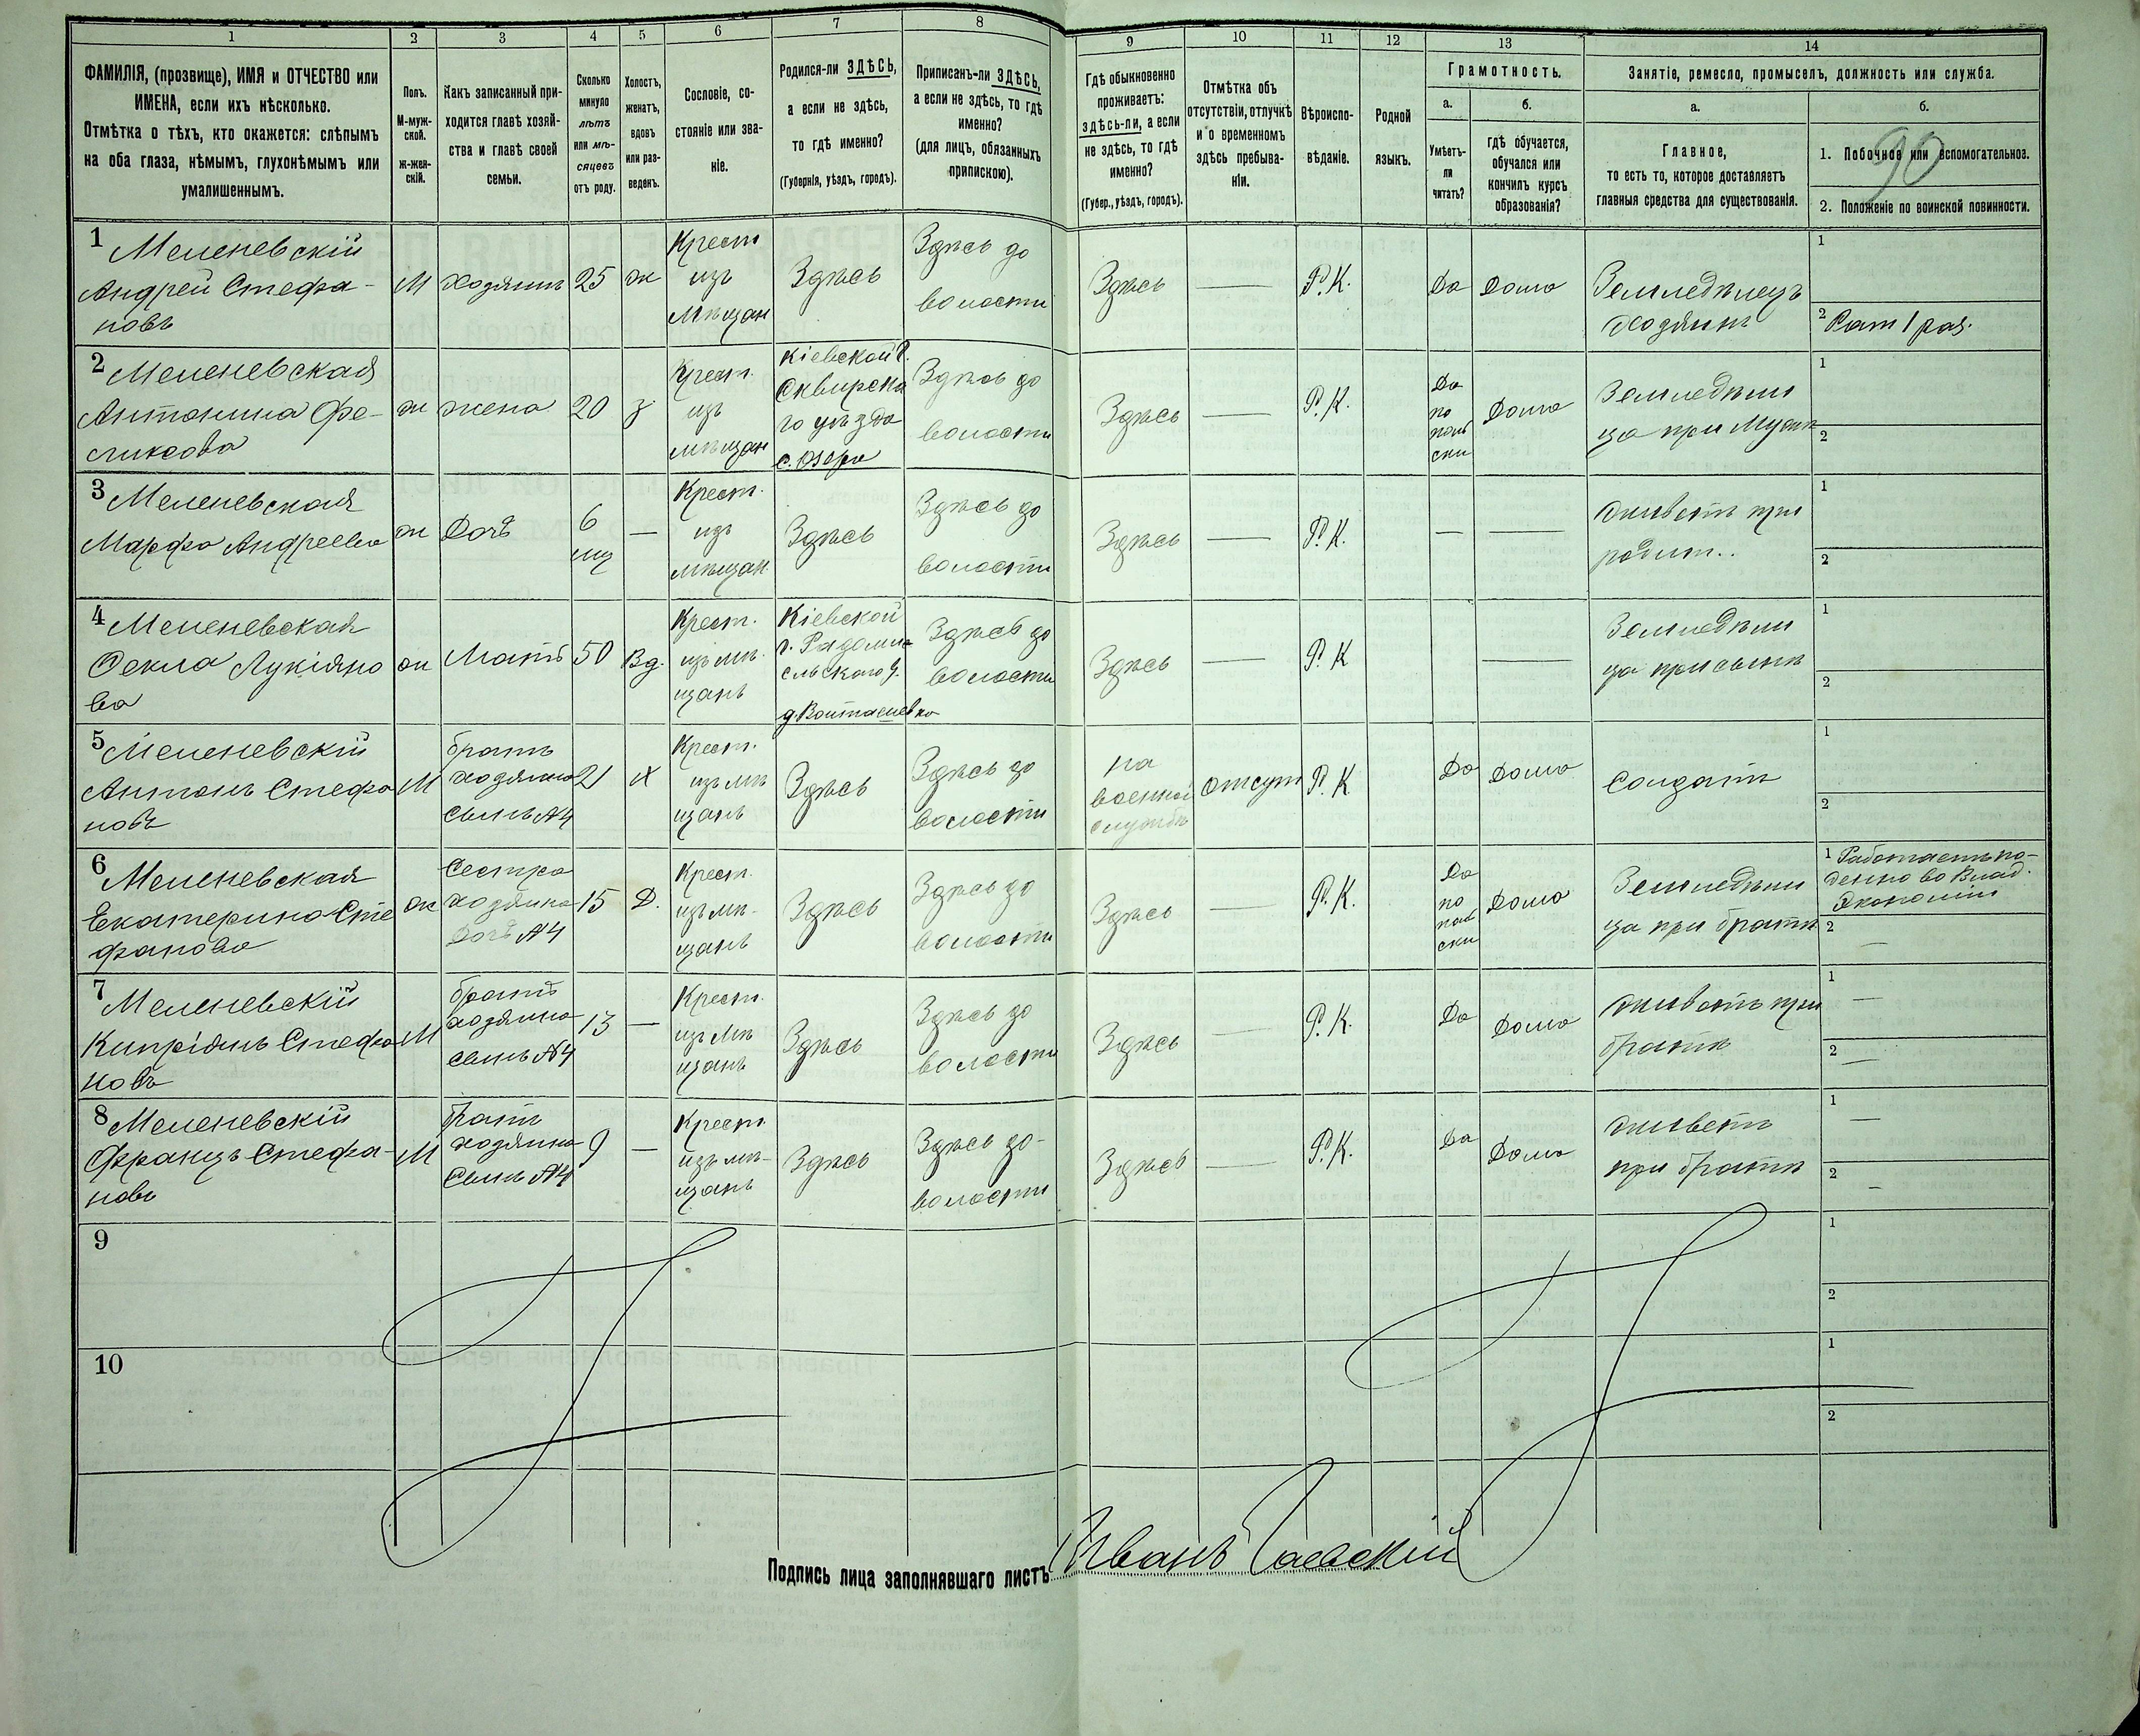 1 2 3 4 5 6 7 8 9 10 11 12 13 14
ФАМИЛІЯ, (прозвище), ИМЯ и ОТЧЕСТВО или
ИМЕНА, если ихъ нѣсколько.
Отмѣтка о тѣхъ, кто окажется: слѣпымъ
на оба глаза, нѣмымъ, глухонѣмымъ или
умалишеннымъ.
Полъ.
М-муж-
ской.
ж-жен-
скій.
Какъ записанный при-
ходится главѣ хозяй-
ства и главѣ своей
семьи.
Сколько
минуло
лѣтъ
или мѣ-
сяцевъ
отъ роду.
Холостъ,
женатъ,
вдовъ
или раз-
веденъ.
Сословіе, со-
стояніе или зва-
ніе.
Родился-ли ЗДѢСЬ,
а если не здѣсь,
то гдѣ именно?
(Губернія, уѣздъ, городъ).
Приписанъ-ли ЗДѢСЬ,
а если не здѣсь, то гдѣ
именно?
(для лицъ, обязанныхъ
припискою).
Гдѣ обыкновенно
проживаетъ:
здѣсь-ли, а если
не здѣсь, то гдѣ
именно?
(Губер., уѣздъ, городъ).
Отмѣтка объ
отсутствіи, отлучкѣ
и о временномъ
здѣсь пребыва-
ніи.
Вѣроиспо-
вѣданіе.
Родной
языкъ.
Грамотность.
а.
Умѣетъ-
ли
читать?
б.
гдѣ обучается,
обучался или
кончилъ курсъ
образованія?
Занятіе, ремесло, промыселъ, должность или служба.
а.
Главное,
то есть то, которое доставляетъ
главныя средства для существованія.
б.
1. Побочное или вспомогательное.
2. Положеніе по воинской повинности.
90
1 Меленевскій
Андрей Стефа-
новъ
М
хозяинъ
25
ж
Крест
изъ
мѣщан
Здѣсь
Здѣсь до
волости
Здѣсь
—
Р.К.
Да
Дома
Земледѣлецъ
Хозяинъ
1
2 Рат 1 раз.
2 Меленевская
Антонина Фе-
ликсова
ж
жена
20
з
Крест.
изъ
мѣщан
Кіевской г.
Сквирска
го уѣзда
с. Озера
Здѣсь до
волости
Здѣсь
—
Р.К.
Да
по
поль
ски
Дома
Земледѣли
ца при Мужѣ
1
2
3 Меленевская
Марфа Андреева
ж
Дочь
6
мц
—
Крест.
изъ
мѣщан
Здѣсь
Здѣсь до
волости
Здѣсь
—
Р.К.
—
—
живетъ при
родит..
1
2
4 Меленевская
Фекла Лукіяно
ва
ж
Мать
50
Вд.
Крест.
изъ мѣ-
щанъ
Кіевской
г. Радомы
сльского у.
Здѣсь до
волости
Здѣсь
—
Р.К
—
Земледѣли
ца при сынѣ
1
2
5 Меленевскій
Антонъ Стефа
новъ
М
братъ
хозяина
сынъ №4
21
х
Крест.
изъ мѣ
щанъ
Здѣсь
Здѣсь до
волости
на
военной
службѣ
отсут
Р.К
Да
Дома
Солдатъ
1
2
6 Меленевская
Екатерина Сте
фанова
ж
Сестра
хозяина
Дочь №4
15
Д.
Крест.
изъ мѣ-
щанъ
Здѣсь
Здѣсь до
волости
Здѣсь
—
Р.К.
Да
по
поль
ски
Дома
Земледѣли
ца при братѣ
1 Работаетъ по-
денно во Влад.
Экономіи
2 —
7 Меленевскій
Кипріянъ Стефа
новъ
М
братъ
хозяина
сынъ №4
13
—
Крест.
изъ мѣ
щанъ
Здѣсь
Здѣсь до
волости
Здѣсь
—
Р.К.
Да
Дома
живетъ при
братѣ
1 —
2 —
8 Меленевскій
Францъ Стефа-
новъ
М
братъ
хозяина
Сынъ №4
9
—
Крест
изъ мѣ-
щанъ
Здѣсь
Здѣсь до-
волости
Здѣсь
—
Р.К.
Да
Дома
живетъ
при братѣ
1 —
2 —
9
1
2
10
1
2
Подпись лица заполнявшаго листъ Иванъ Гаевскій